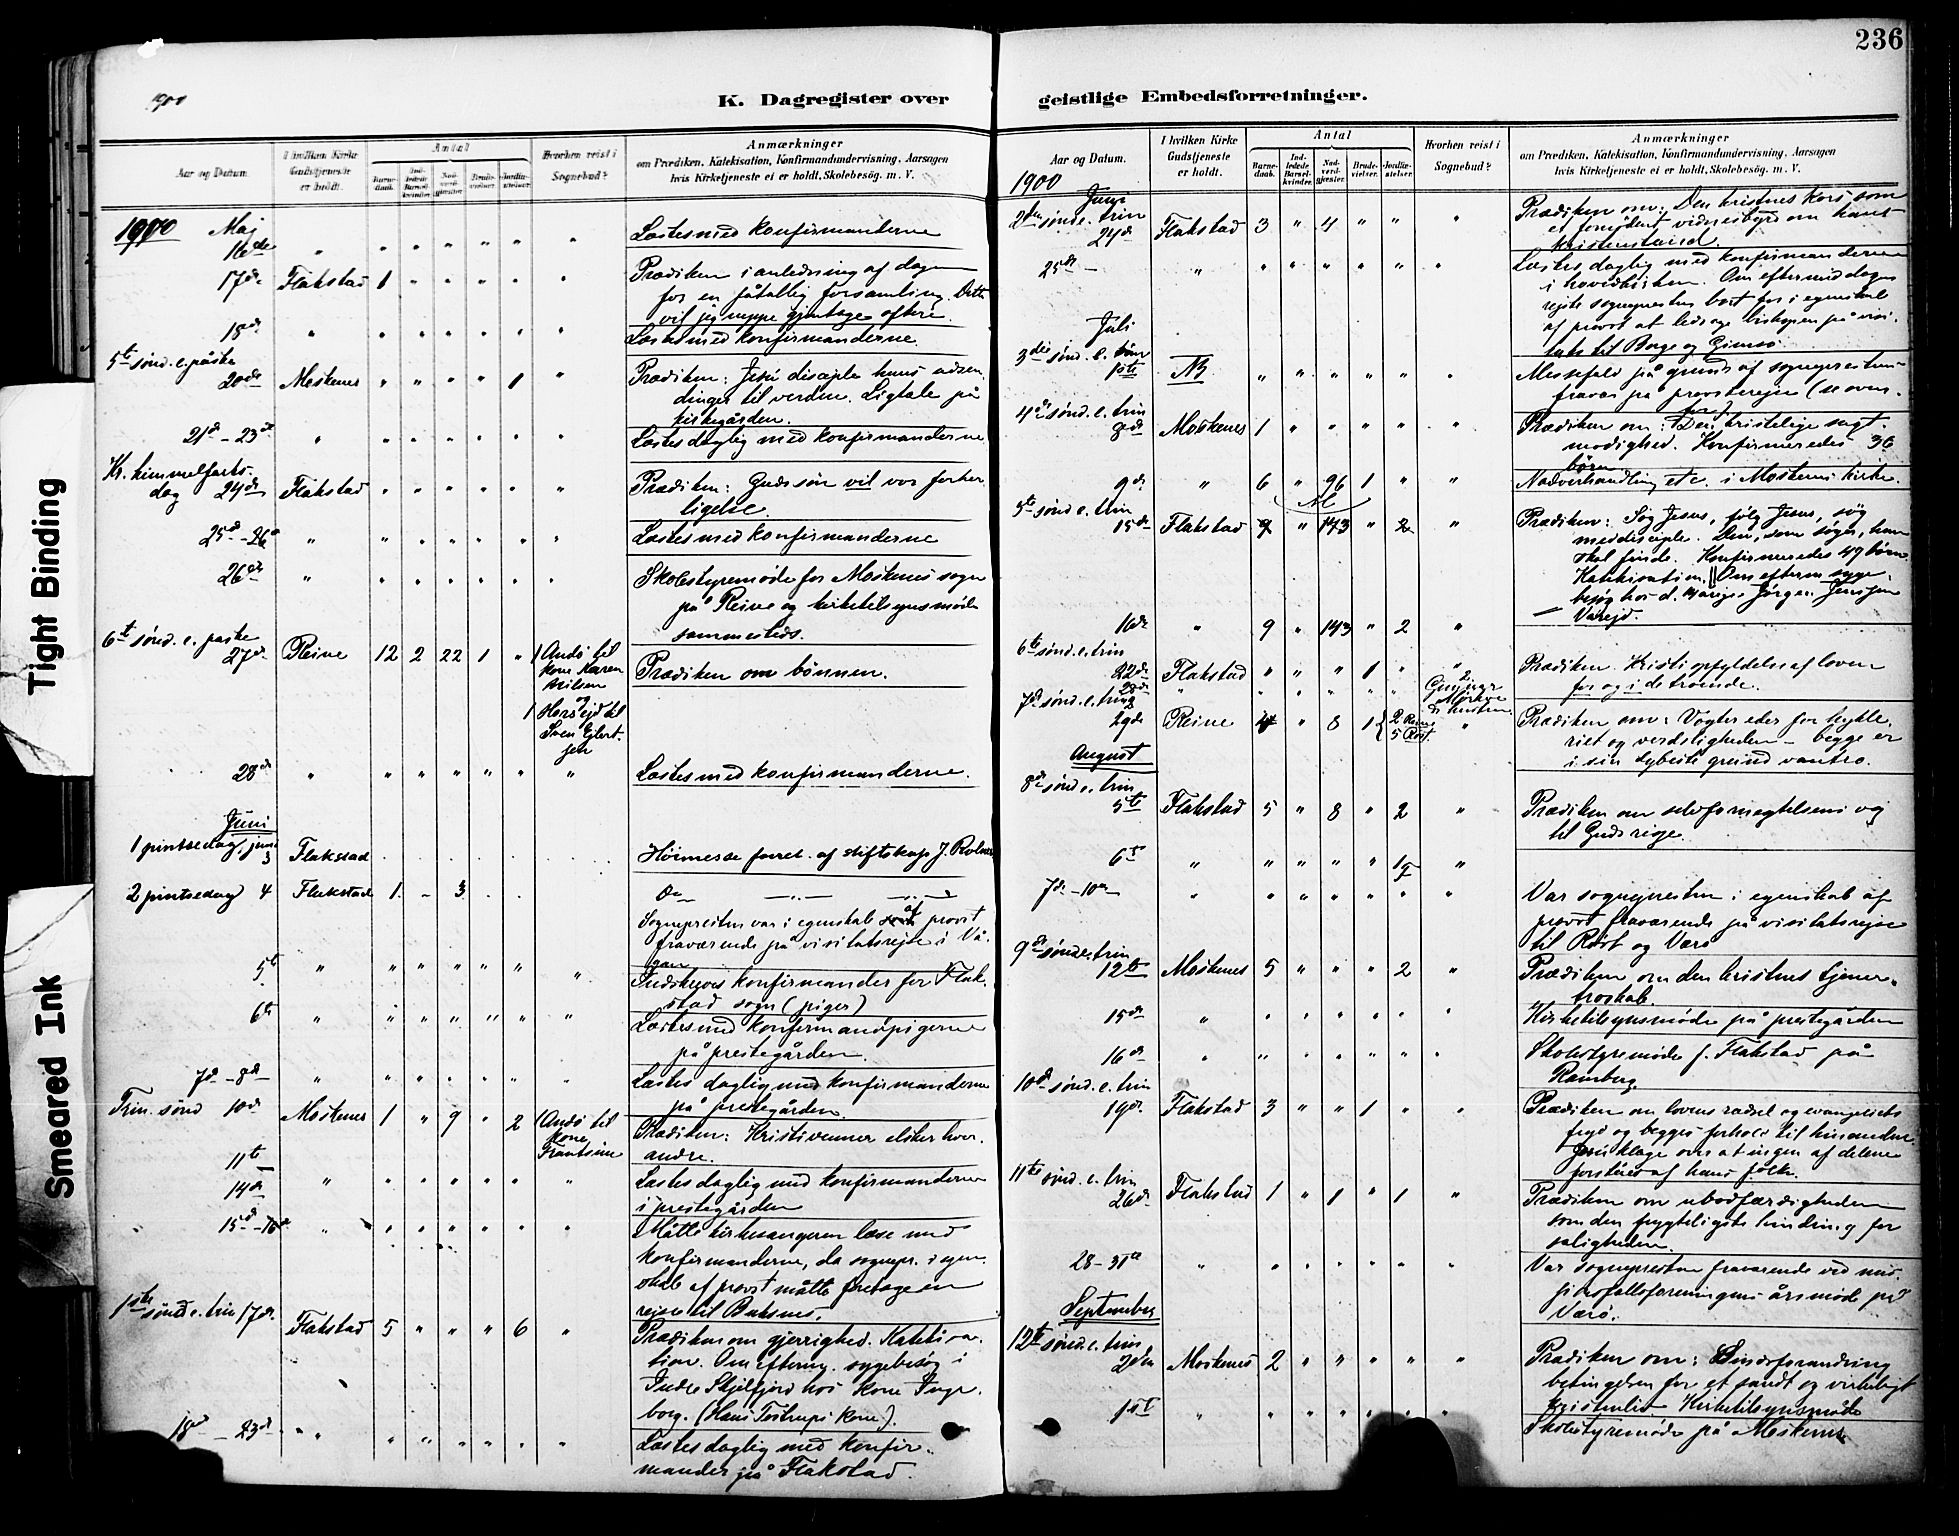 236
1900
K. Dagregister over
geistlige Embedsforretninger.
Aar og Datum.
I hvilken Kirke Gudstjeneste er holdt.
Antal
Barnedaab.
Indledede Barselkvinder.
Nadverdgjester.
Brudevielser.
Jordfæstelser.
Hvorhen reist i Sognebud?
Anmærkninger
om Prædiken, Katekisation, Konfirmandundervisning, Aarsagen
hvis Kirketjeneste ei er holdt, Skolebesøg. m. V.
1900 Maj
16de " " " " " " " Læstes med konfirmanterne
17de Flakstad 1 " " " " " Prædiken i anledning af dagen
for en fåtallig forsamling. Dette
vil jeg neppe gjentage oftere.
18de " " " " " " " Læstes med konfirmanderne.
5te sønd. e. påske
20de Moskenes " " " " 1 " Prædiken: Jesu disciple hans udsen-
dinger til verden. Ligtale på
kirkegården.
21de - 23de " " " " " " " Læstes daglig med konfirmanderne
Kr. himmelfarts-
dag 24de Flakstad " " " " " " Prædiken: Guds søn vil vor forher-
ligelse.
25de - 26de " " " " " " " Læstes med konfirmanderne
26de " " " " " " " Skolestyremøde for Moskenes sogn
på Reine og kirketilsynsmøde
sammesteds.
6te sønd. e. paske
27de Reine 12 2 22 1 " 1 Andø til kone Karen Nilsen Prædiken om bønnen.
og
1 Horseid til
Sven Ejlert-
sen
28de " " " " " " " Læstes med konfirmanderne.
Juni
1 pintsedag juni 3 Flakstad Høimesse forret. af stiftskap J. Rolnes
2 pintsedag 4 Flakstad 1 - 3 Do
Sognepresten var i egenskab af provst
fraværende på visitatsrejse i Vå-
gan
5te " " " " " " " Indskreves konfirmander for Flak-
stad sogn (piger)
6te " " " " " " " Læstes med konfirmandpigerne
på prestegården.
7de - 8de " " " " " " " Læstes daglig med konfirmanderne
på prestegården.
Trin. sønd 10de Moskenes 1 " 9 " 2 1 Andø til kone Frantsine Prædiken: Kristi venner elsker hver-
andre.
11te
14de " " " " " " " Læstes daglig med konfirmanderne
i prestegården
15de - 16de " " " " " " " Måtte kirkesangeren læse med
konfirmanderne, da sognepr. i egen-
skab af provst måtte foretage en
rejse til Buksnes.
1ste sønd e. trin 17de Flakstad 5 " " " 6 " Prædiken om gjerrighed. Katekisa-
tion. Om efterm. sygebesøg i
Indre Skjelfjord hos kone Inge-
borg. (Hans Testrups kone).
18de - 23de " " " " " " " Læstes daglig med konfir-
mander på Flakstad.
1900
Juni
2den sønd e. trin
24de Flakstad 3 " 4 " " " Prædiken om: Den kristnes kors, som
et fornødent vidnesbyrd om hans
kristenstand
25de - " " " " " " " Læstes daglig med konfirmanderne
i hovedkirken. Om eftermiddagen
rejste sognepresten bort for i egenskab
af provst at ledsage biskopen på visi-
tats til Borge og Gimsø.
Juli
3die sønd. e. trin
1ste NB " " " " " " Messefald på grund af sognepresten
fravær på provsterejse (se oven-
for)
4de sønd. e. trin
8de Moskenes 1 " " " " " Prædiken om: Den kristelige sagt-
modighed. Konfirmeredes 36
børn
9de " 6 " 96 1 " " Nadverhandling etc. i Moskenes kirke.
5te sønd e. trin
15de Flakstad 9 " 143 " 2 " Prædiken: Søg Jesus, følg Jesus, søg
meddisciple. Den, som søger, han
skal finde. Konfirmeredes 49 børn.
Katekisation. Om efterm syge-
besøg hos d. 14 arige Jørgen Jensen
Vareid.
16de " 9 " 143 " 2 "
6te sønd e. trin
22de Flakstad " " " 1 " " Prædiken. Kristi opfyldelse af loven
for og i de troende.
28de " " " " " "
7de sønd. e. trin
29de Reine 4 " 8 1 { 2 Reine 5 Røst. " Prædiken om: Vogter eder for hykle-
riet og verdsligheden - begge er
i sin dybeste grund vantro.
August
8de sønd e. trin
5te Flakstad 5 " 8 " 2 " Prædiken om selvfornegtelsens vej
til Guds rige
6te " " " " " 1 "
7de - 10de " " " " " " " Var sognepresten i egenskab af
provst fraværende på visitatsrejse
til Røst og Værø
9de sønd e. trin
12te Moskenes 5 " " " 2 " Prædiken om den kristnes tjener-
troskab.
15de " " " " " " " Kirketilsynsmøde på prestegården
16de " " " " " " " Skolestyremøde f. Flakstad på
Ramberg.
10de sønd. e. trin
19de Flakstad 3 " " 1 " " Prædiken om lovens rædsel og evangeliets
fryd og begges forhold til hinanden.
Jesu klage over at ingen af delene
forståes af hans folk.
11te sønd. e. trin
26de Flakstad 1 " 1 " 1 " Prædiken om ubodfærdigheden
som den frygteligste hindring for
saligheden.
28 - 31te " " " " " " " Var sognepresten fraværende ved mis-
jonsfællesforeningens årsmøde på
Værø.
September
12te sønd. e. trin
2den Moskenes 2 " " " " " Prædiken om: Sindsforandring
betingelsen for et sandt og virkeligt
kristenliv. Kirketilsynsmøde
1ste " " " " " " " Skolestyremøde på Moskenes
Tight Binding
Smeared Ink